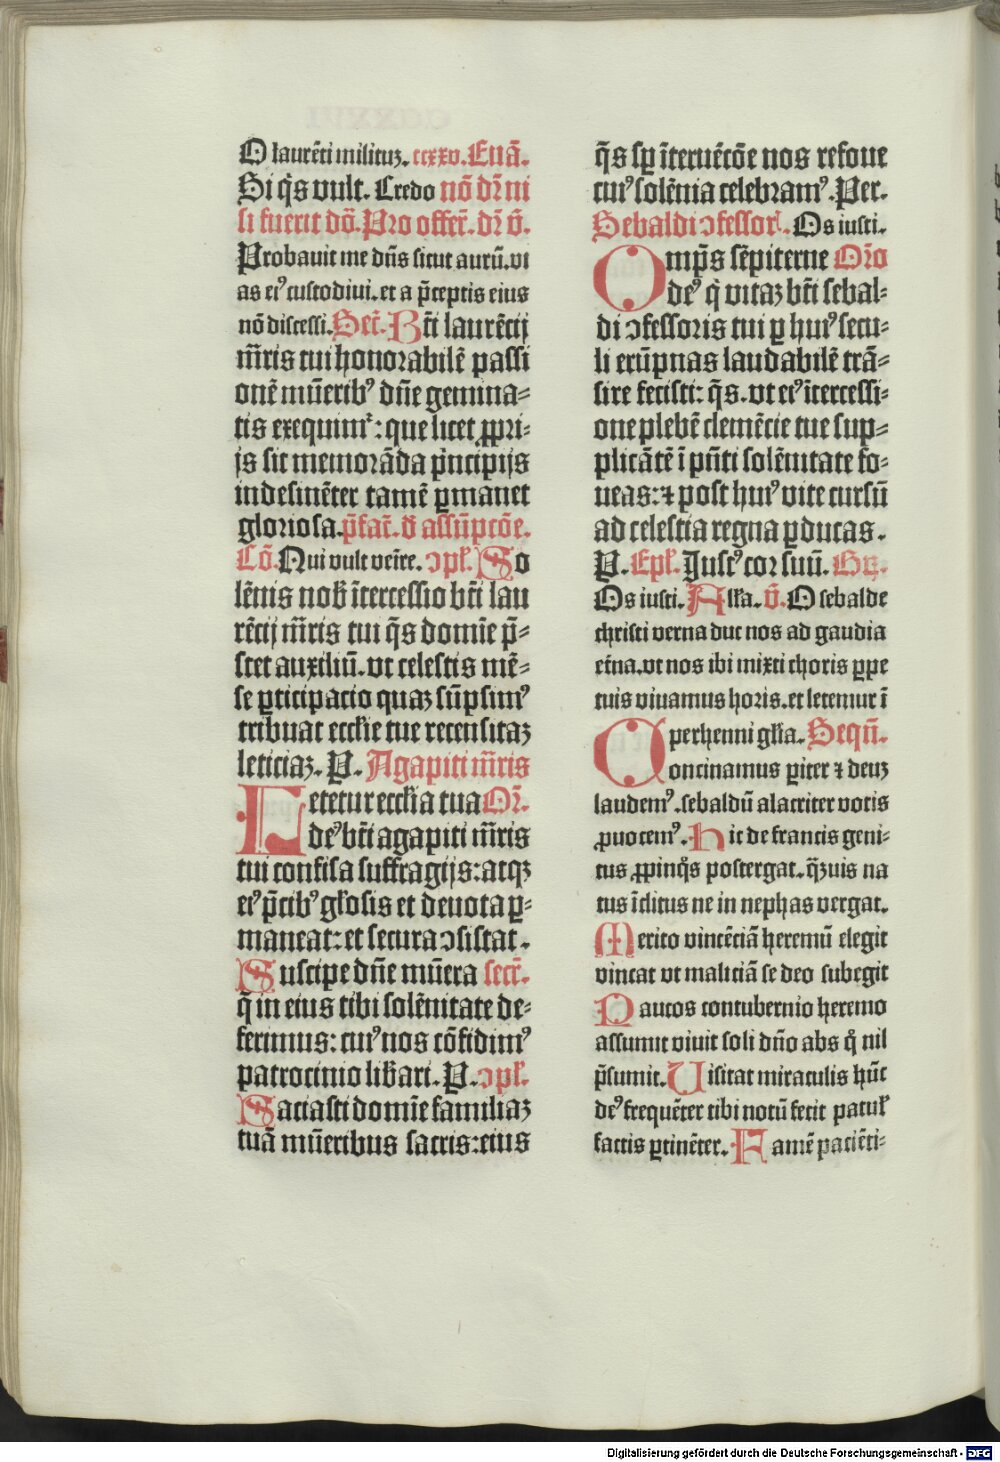 O laurēti militūz. ccxxv. Euā.
Si q̄s vult. Credo nō dr̄ ni
si fuerit dō. Pro offer̄. dr̄ v̄.
Probauit me dn̄s sicut aurū. vi
as eiꝰ custodiui. et a p̄ceptis eius
nō discessi. Secr̄. Bt̄i laurēcij
mr̄is tui honorabilē passi
onē mūeribꝰ dn̄e gemina⸗
tis exequimr̄: que licet ꝓpri⸗
js sit memorāda pⁿcipijs
indesinēter tamē ꝑmanet
gloriosa. p̄fac̄. d̄ assūpcōe.
Cō. Qui vult veīre. ↄpl̄. So
lēnis nob̄ ītercessio bt̄i lau
rēcij mr̄is tui q̄s domīe p̄⸗
stet auxiliū. vt celestis mē⸗
se ꝑticipacio quaꝫ sūpsimꝰ
tribuat eccl̄ie tue recensitaꝫ
leticiaꝫ. P. Agapiti mr̄is
Letetur eccl̄ia tua Or̄.
deꝰ bt̄i agapiti mr̄is
tui confisa suffragijs: atqꝫ
eiꝰ p̄cibꝰ gl̄osis et deuota ꝑ⸗
maneat: et secura ↄsistat.
Suscipe dn̄e mūera secr̄.
q̄ in eius tibi solēnitate de⸗
ferimus: cuiꝰ nos cōfidimꝰ
patrocinio lib̄ari. P. ↄpl̄.
Saciasti domīe familiaꝫ
tuā mūeribus sacris: eius
q̄s sꝑ īteruēcōe nos refoue
cuiꝰ solēnia celebramꝰ. Per.
Sebaldi ↄfessor̄. Os iusti.
Omp̄s sēpiterne Or̄o
deꝰ q̇ vitaꝫ bt̄i sebal⸗
di ↄfessoris tui ꝑ huiꝰ secu⸗
li erūpnas laudabilē trā⸗
sire fecisti: q̄s. vt eiꝰ ītercessi⸗
one plebē clemēcie tue sup⸗
plicātē ī pn̄ti solēnitate fo⸗
ueas: ⁊ post huiꝰ vite cursū
ad celestia regna ꝑducas.
P. Epl̄. Justꝰ cor suū. Gr̄.
Os iusti. Alla. v̄. O sebalde
christi verna duc nos ad gaudia
etn̄a. vt nos ibi mixti choris ꝑpe
tuis viuamus horis. et letemur ī
perhenni gl̄ia. Sequē.
Concinamus ꝑiter ⁊ deuꝫ
laudemꝰ. sebaldū alacriter votis
ꝓuocemꝰ. Hic de francis geni⸗
tus ꝓpinq̄s postergat. q̄ꝫuis na
tus īclitus ne in nephas vergat.
Merito vincēciā heremū elegit
vincat vt maliciā se deo subegit
Paucos contubernio heremo
assumit viuit soli dn̄o abs q̇ nil
p̄sumit. Uisitat miraculis hūc
deꝰ frequēter tibi notū fecit patul̄
factis ꝑtinēter. Famē paciēti⸗
Digitalisierung gefördert durch die Deutsche Forschungsgemeinschaft - DFG